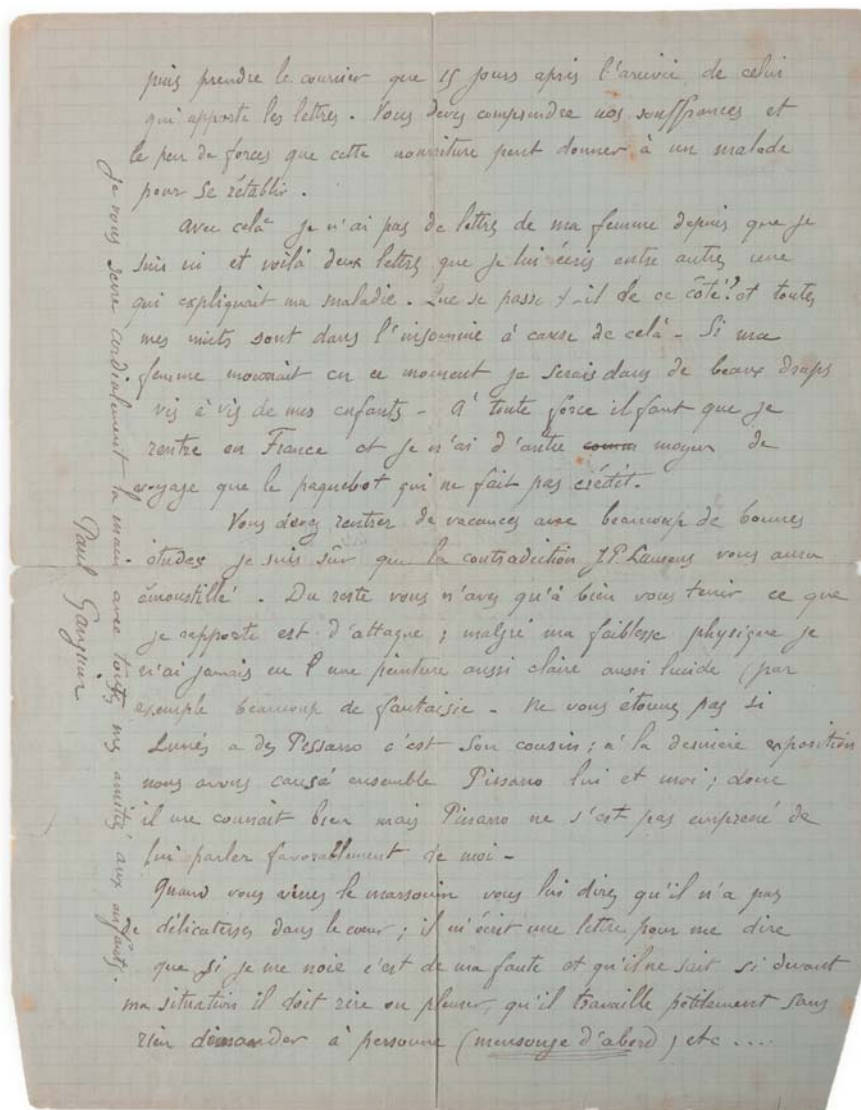 puis prendre le courrier que 15 jours après l'arrivée de celui
qui apporte les lettres. Vous devez comprendre nos souffrances et
le peu de forces que cette nourriture peut donner à un malade
pour se rétablir.
Avec celà je n'ai pas de lettres de ma femme depuis que je
suis ici et voilà deux lettres que je lui écris entre autres une
qui expliquait ma maladie. Que se passe t-il de ce côté? et toutes
mes nuits sont dans l'insomnie à cause de celà - Si ma
femme mourrait en ce moment je serais dans de beaux draps
vis à vis de mes enfants - A toute force il faut que je
rentre en France et je n'ai d'autre moyen de
voyage que le paquebot qui ne fait pas crédit.
Vous devez rentrer de vacances avec beaucoup de bonnes
études je suis sûr que la contradiction J.P. Laurens vous aura
émoustillé. Du reste vous n'avez qu'à bien vous tenir ce que
je rapporte est d'attaque; malgré ma faiblesse physique je
n'ai jamais eu une peinture aussi claire aussi lucide (par
exemple beaucoup de fantaisie - Ne vous étonnez pas si
a des Pissarro c'est son cousin; à la dernière exposition
nous avons causé ensemble Pissarro lui et moi; donc
il me connait bien mais Pissarro ne s'est pas empressé de
lui parler favorablement de moi -
Quand vous verrez le marsouin vous lui direz qu'il n'a pas
de délicatesses dans le cœur; il m'écrit une lettre pour me dire
que si je me noie c'est de ma faute et qu'il ne sait si devant
ma situation il doit rire ou pleurer, qu'il travaille petitement sans
rien demander à personne (mensonge d'abord) etc....
je vous serre cordialement la main avec toutes mes amitiés aux enfants.
Paul Gauguin